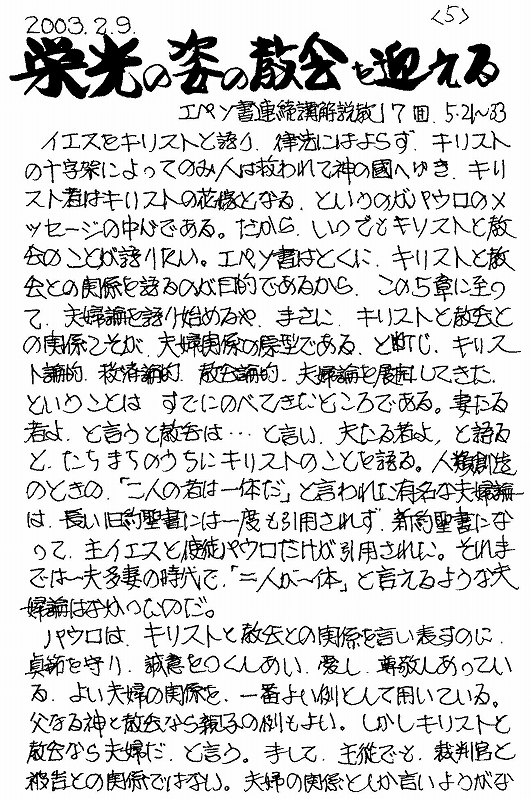 2003.2.9.
〈5〉
栄光の姿の教会を迎える
エペソ書連続講解説教17回.5.21〜33
イエスをキリストと語り、律法にはよらず、キリスト
の十字架によってのみ人は救われて神の國へゆき、キリ
スト者はキリストの花嫁となる、というのがパウロのメ
ッセージの中心である。だから、いつでもキリストと教
会のことが語りたい。エペソ書はとくに、キリストと教
会との関係を語るのが目的であるから、この5章に至っ
て、夫婦論を語り始めるや、まさに、キリストと教会と
の関係こそが、夫婦関係の原型である、と断じ、キリス
ト論的、救済論的、教会論的、夫婦論を展開してきた、
ということは すでにのべてきたところである。妻たる
者よ、と言うと教会は…と言い、夫たる者よ、と語る
と、たちまちのうちにキリストのことを語る。人類創造
のときの、「二人の者は一体だ」と言われた有名な夫婦論
は、長い旧約聖書には一度も引用されず、新約聖書にな
って、主イエスと使徒パウロだけが引用された。それま
では一夫多妻の時代で、「二人が一体」と言えるような夫
婦論はなかったのだ。
パウロは、キリストと教会との関係を言い表すのに、
貞節を守り、誠意をつくしあい、愛し、尊敬しあってい
る、よい夫婦の関係を、一番よい例として用いている。
父なる神と教会なら親子の例もよい。しかしキリストと
教会なら夫婦だ、と言う。まして、主従でも、裁判官と
被告との関係ではない。夫婦の関係としか言いようがな